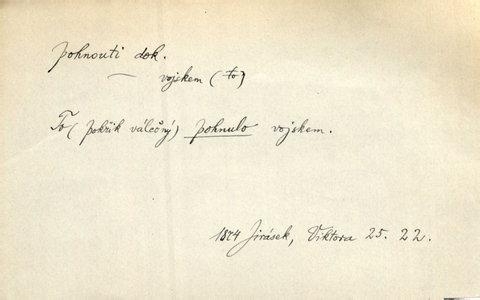 pohnouti dok.
— vojskem (to)
To (pokřik válečný) pohnulo vojskem.
1874 Jirásek, Viktora 25. 22.